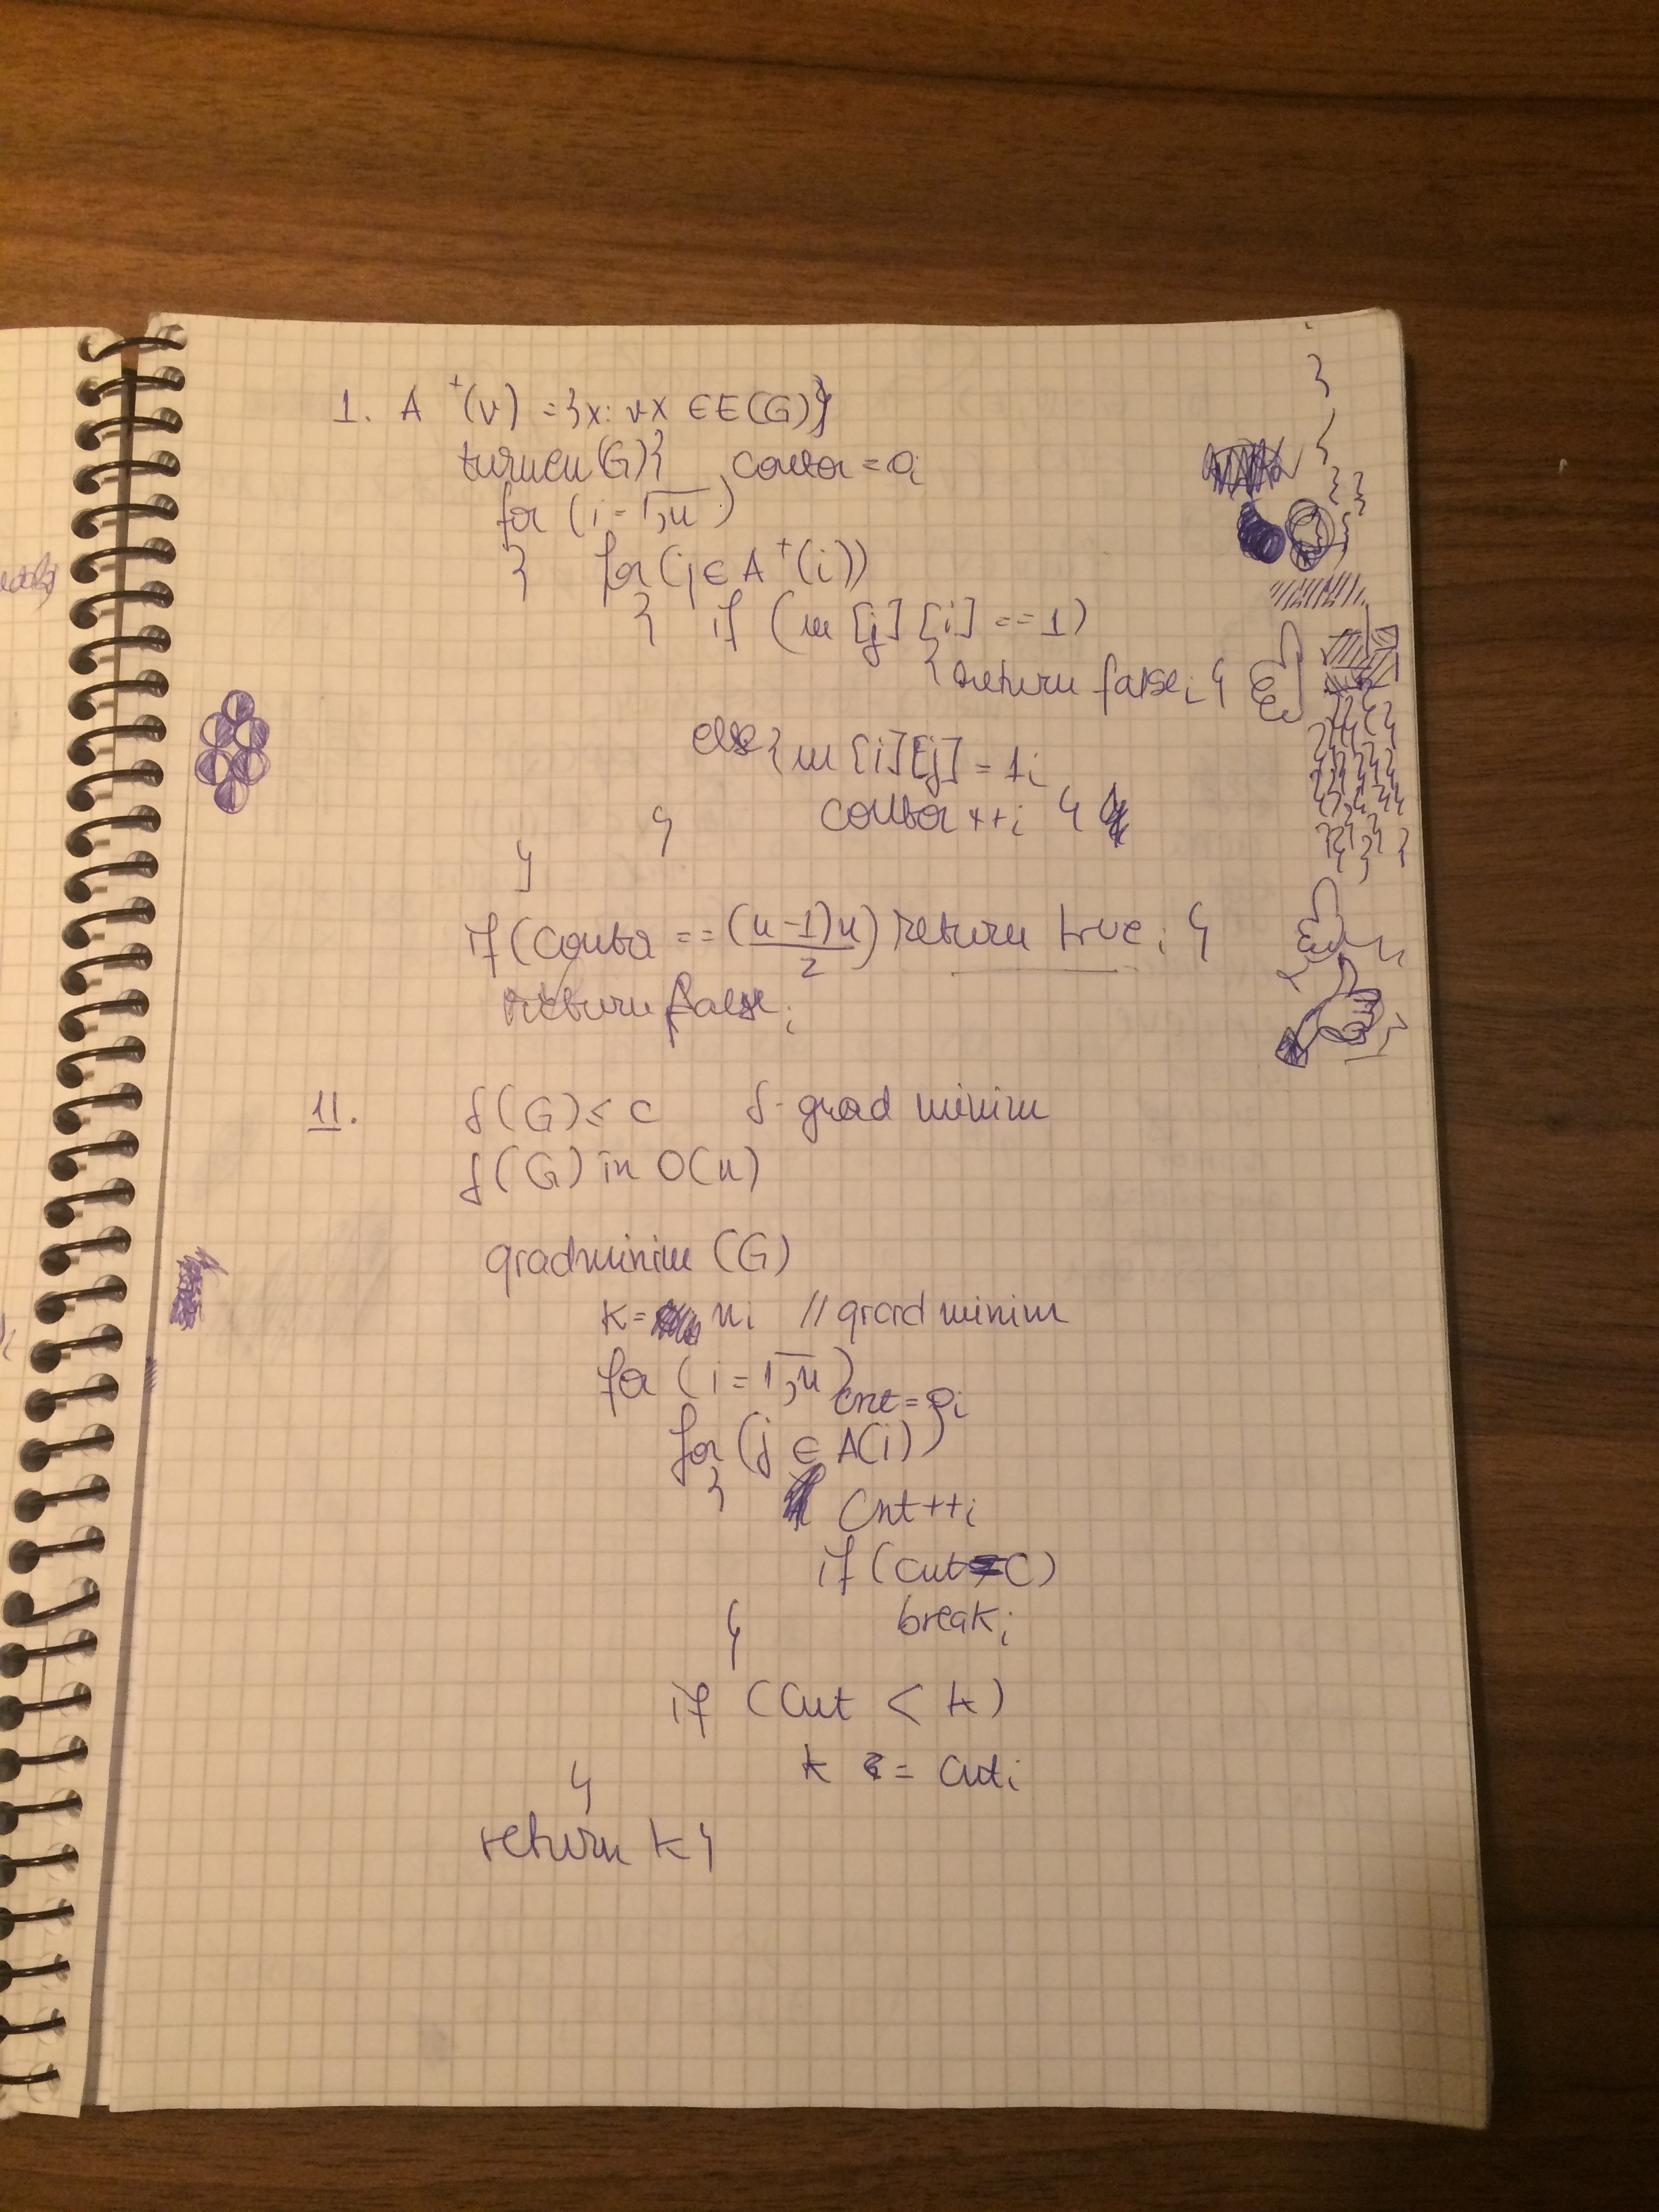 1. A⁺(v) = {x: vx ∈ E(G)}
turneu(G){ contor = 0;
for (i = 1,n)
{ for (j ∈ A⁺(i))
{ if (m[j][i] == 1)
{ return false; }
else { m[i][j] = 1;
contor++; }
}
}
if (contor == (n-1)n/2) return true; }
return false;
11. δ(G) ≤ c δ - grad minim
δ(G) in O(n)
gradminim (G)
k = n; // grad minim
for (i = 1,n) cnt = 0;
for (j ∈ A(i))
{ cnt++;
if (cnt = C)
} break;
if (cnt < k)
k = cnt;
}
return k }